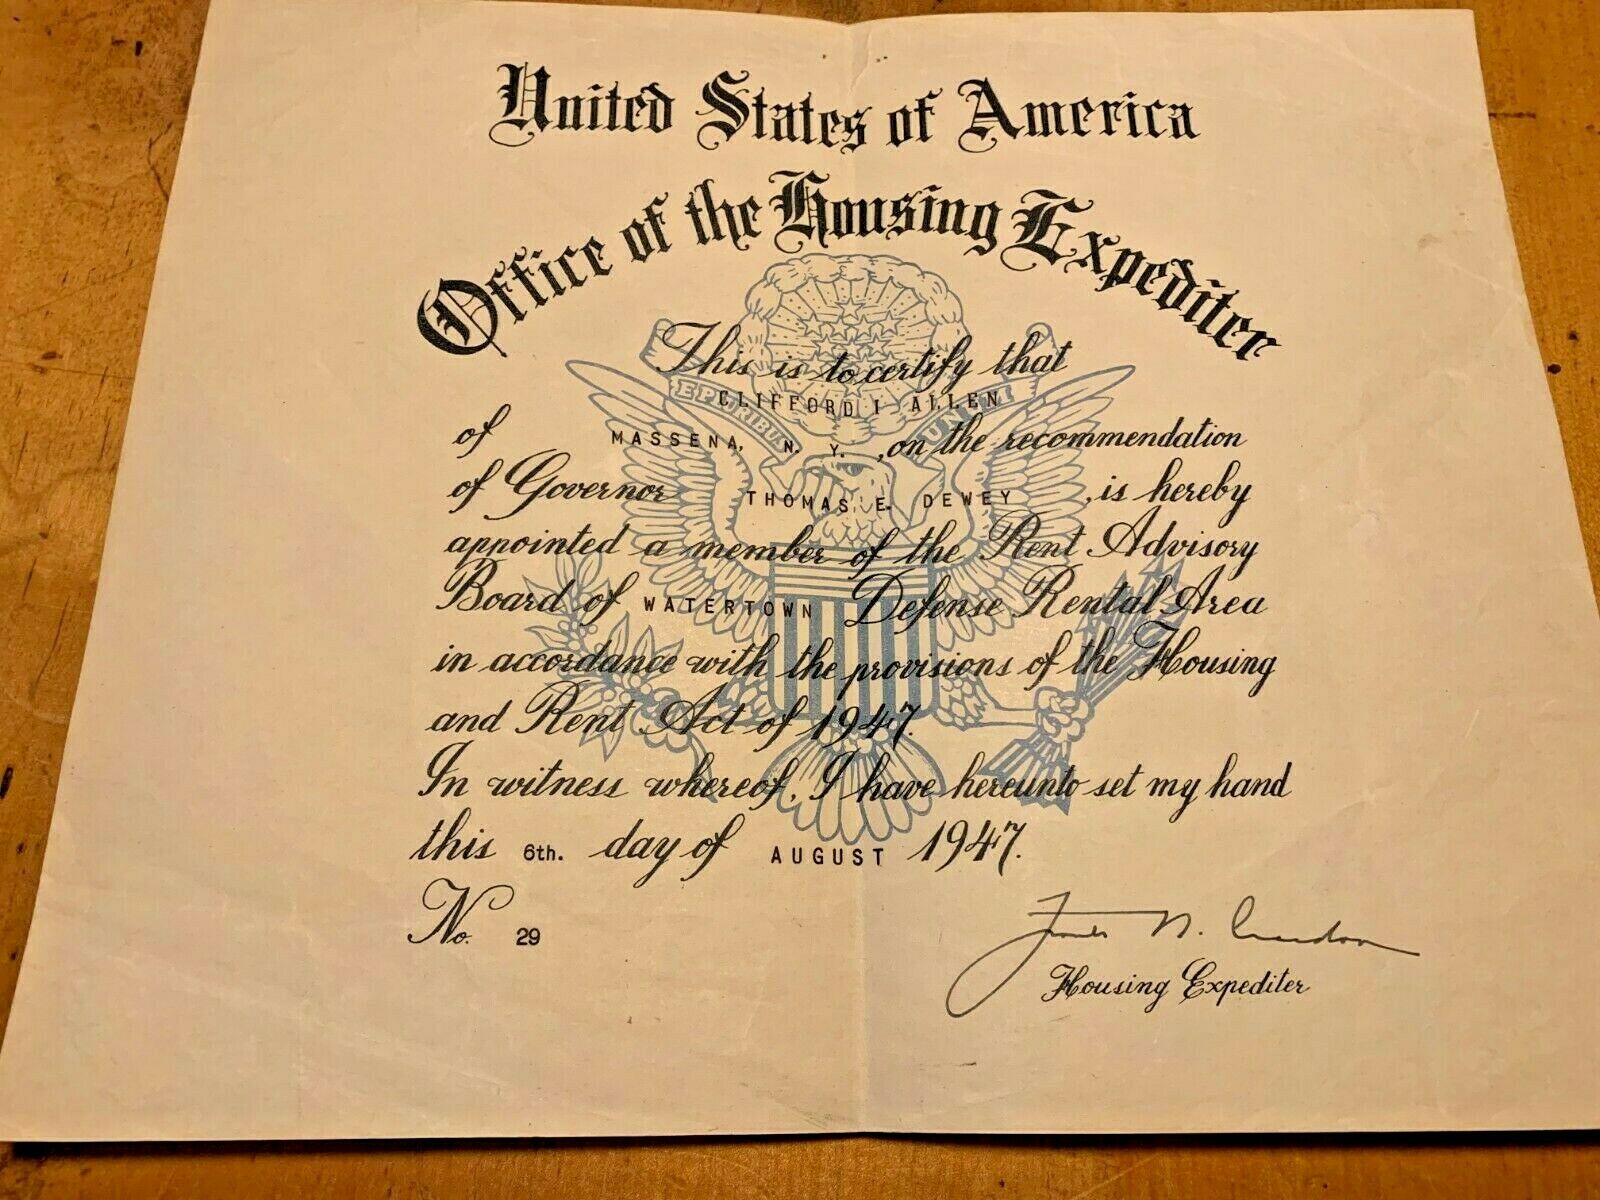 United States of America
Office of the Housing Expediter
This is to certify that
E PLURIBUS UNUM
CLIFFORD I ALLEN
of MASSENA, N. Y. , on the recommendation
of Governor THOMAS E. DEWEY , is hereby
appointed a member of the Rent Advisory
Board of WATERTOWN Defense Rental Area
in accordance with the provisions of the Housing
and Rent Act of 1947.
In witness whereof, I have hereunto set my hand
this 6th. day of AUGUST 1947.
No. 29
Housing Expediter